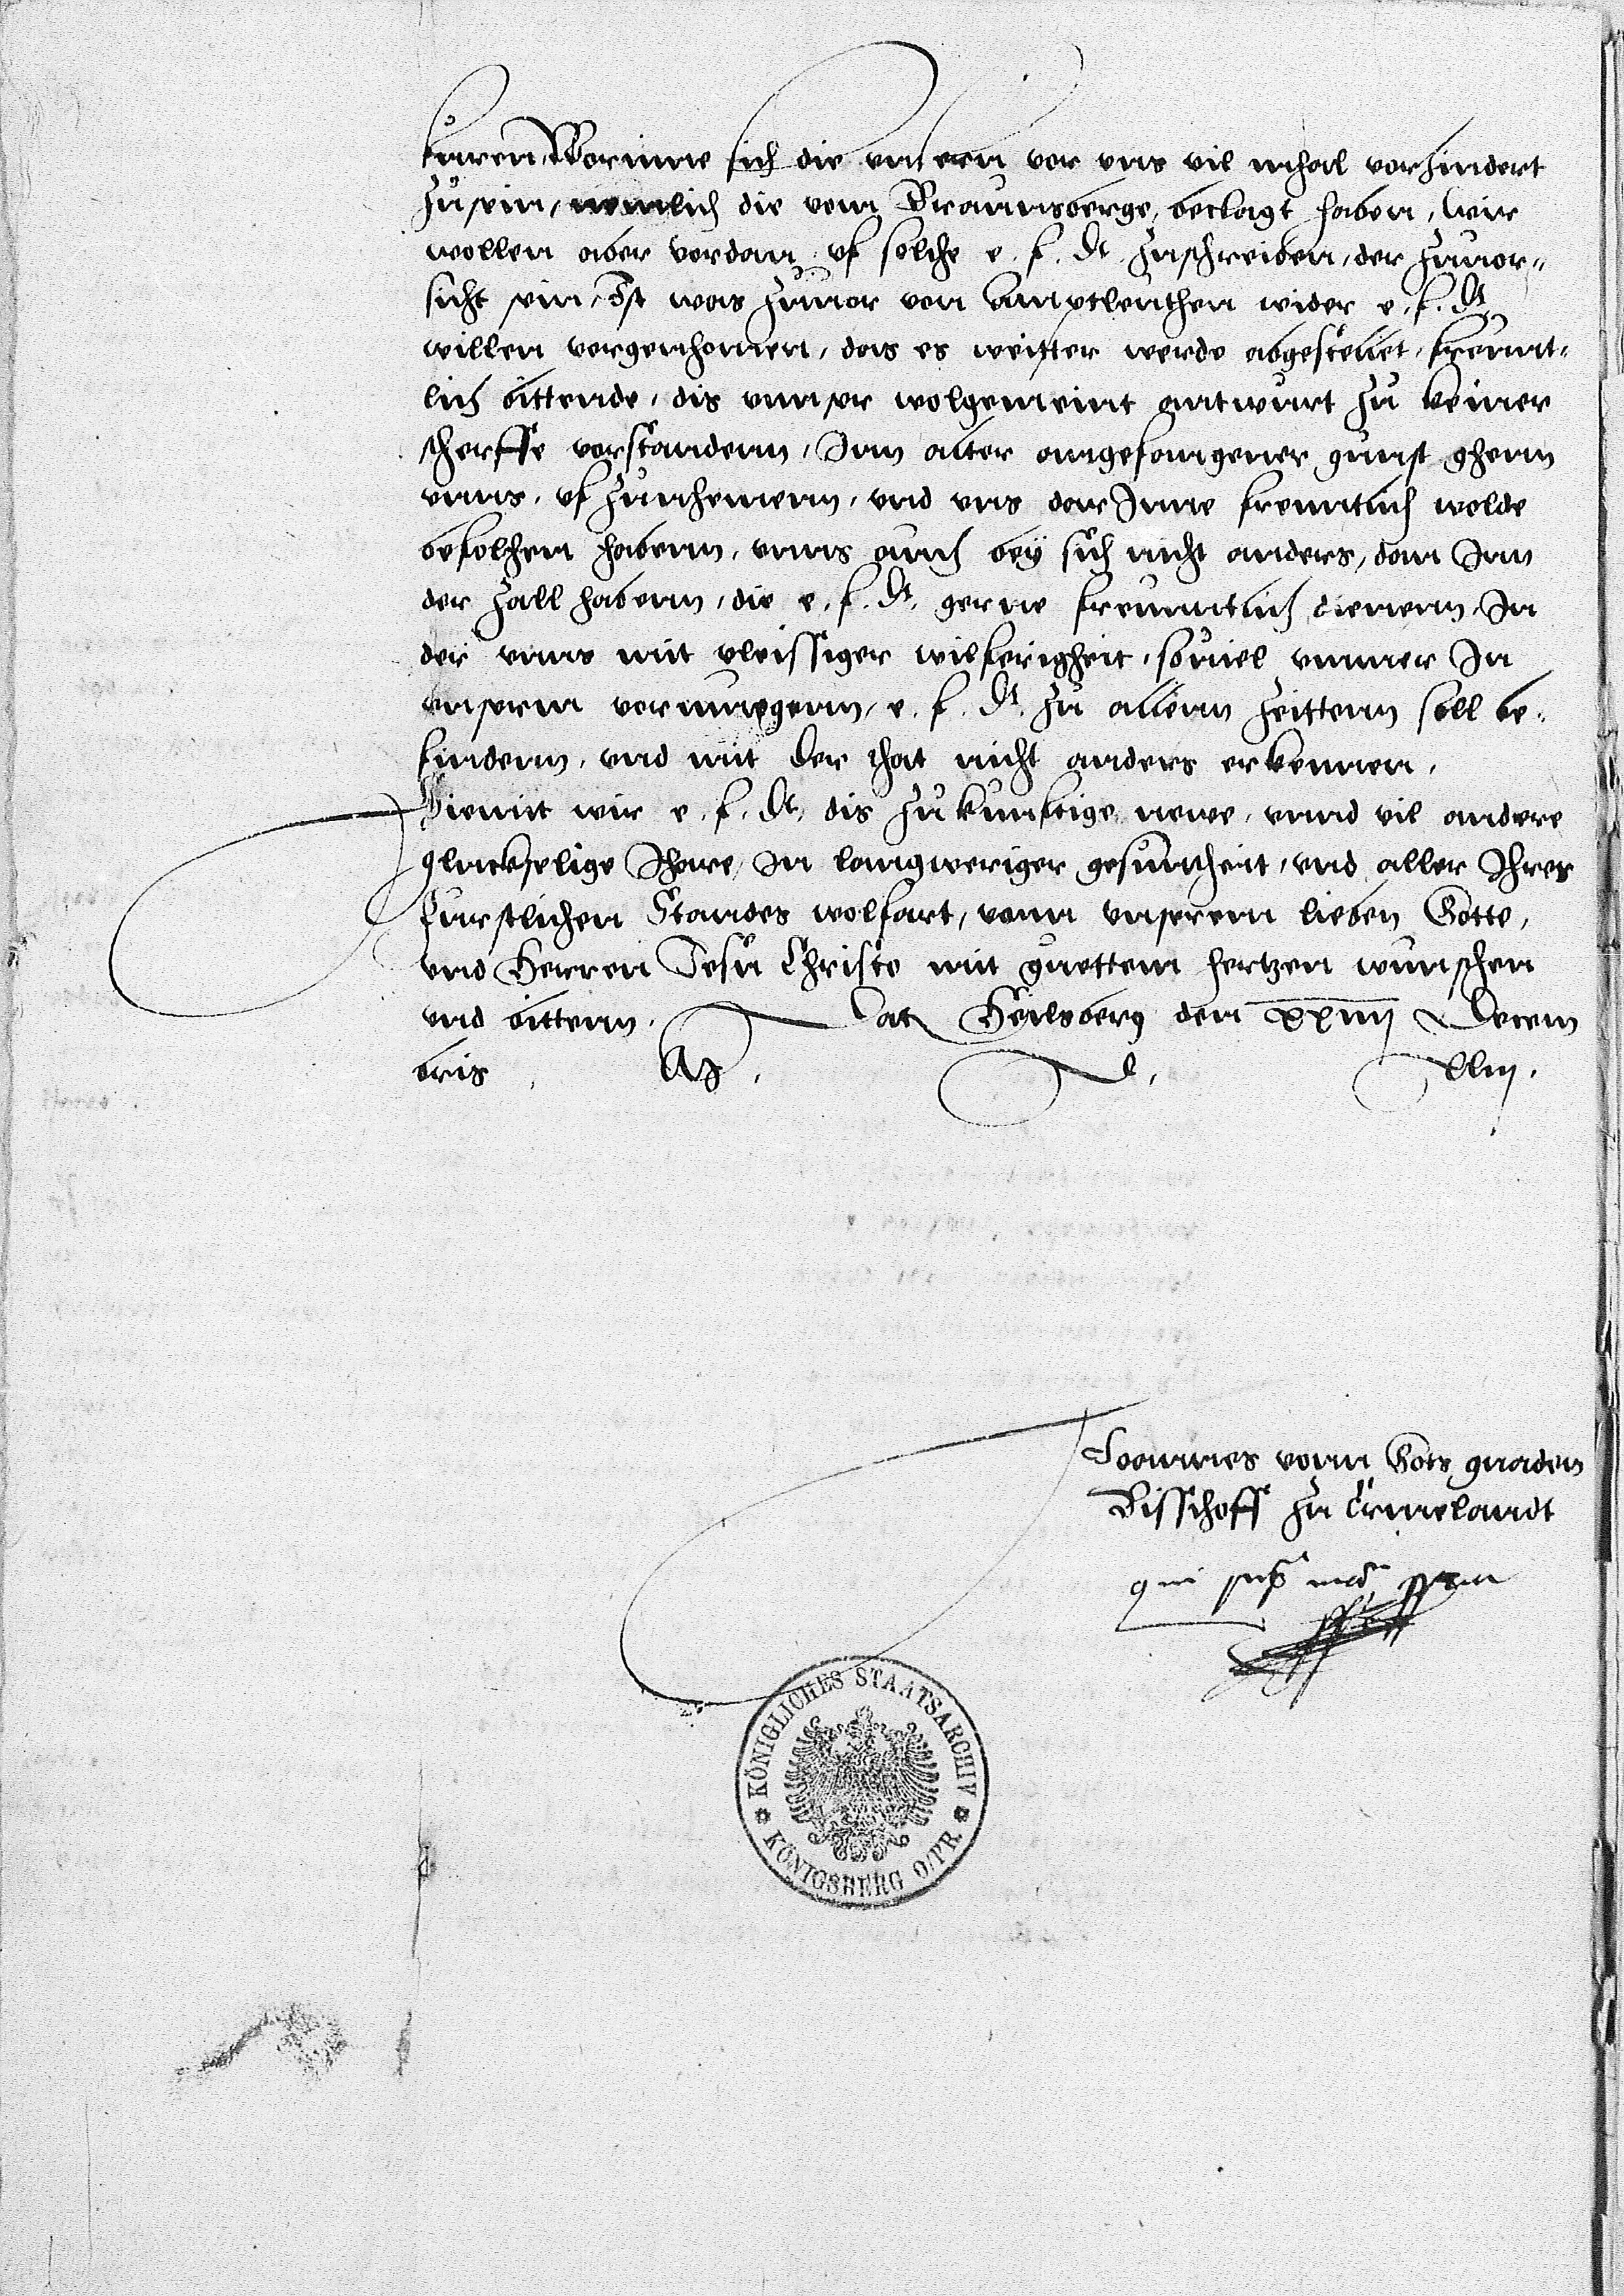 fueren, Worinne sich die unsern vor uns vil mhal vorhindert
zu sein, nemlich die vom Braunsberge, beclagt haben, Wir
wollen aber vordan uf solche e. f. Dt. zuschreiben, der zuvor-
sicht sein, Ist was zuvor von amptleuthen wider e. f. Dt.
willen vorgenhomen, das es weitter werde abgestellet, freunt-
lich bittende, dis unnser wolgemeint antwurt zu keiner
scherffe vorstandenn, Inn alter angefangener gunst ghenn
unns, uf zunhemenn, und uns dar Inne freuntlich wolde
befolhen habenn, unns auch bey sich nicht anders, dan Inn
der zall habenn, die e. f. Dt. gerne freunntlich dienenn, In
der unns mit vleissiger wilferigheit, soviel ummer In
unserm vormuegenn, e. f. Dt. zu allenn zeittenn soll be-
findenn, und mit der that nicht anders erkennen,
Hiemit wir e. f. Dt. dis zukunftige newe, unnd vil andere
gluckselige Jhare, In langweriger gesuntheit, und aller Ihres
Furstlichen Standes wolfart, vonn unserem lieben Gotte,
und Herren Jesu Christo mit guettem hertzen wunschen
und bittenn. Dat Heilsberg den xxiiij Decem
bris M. D. xliij.
Joannes vonn Gots gnaden
Bisschoff zu Ermelandt
KÖNIGLICHES STAATSARCHIV
KÖNIGSBERG O/PR.